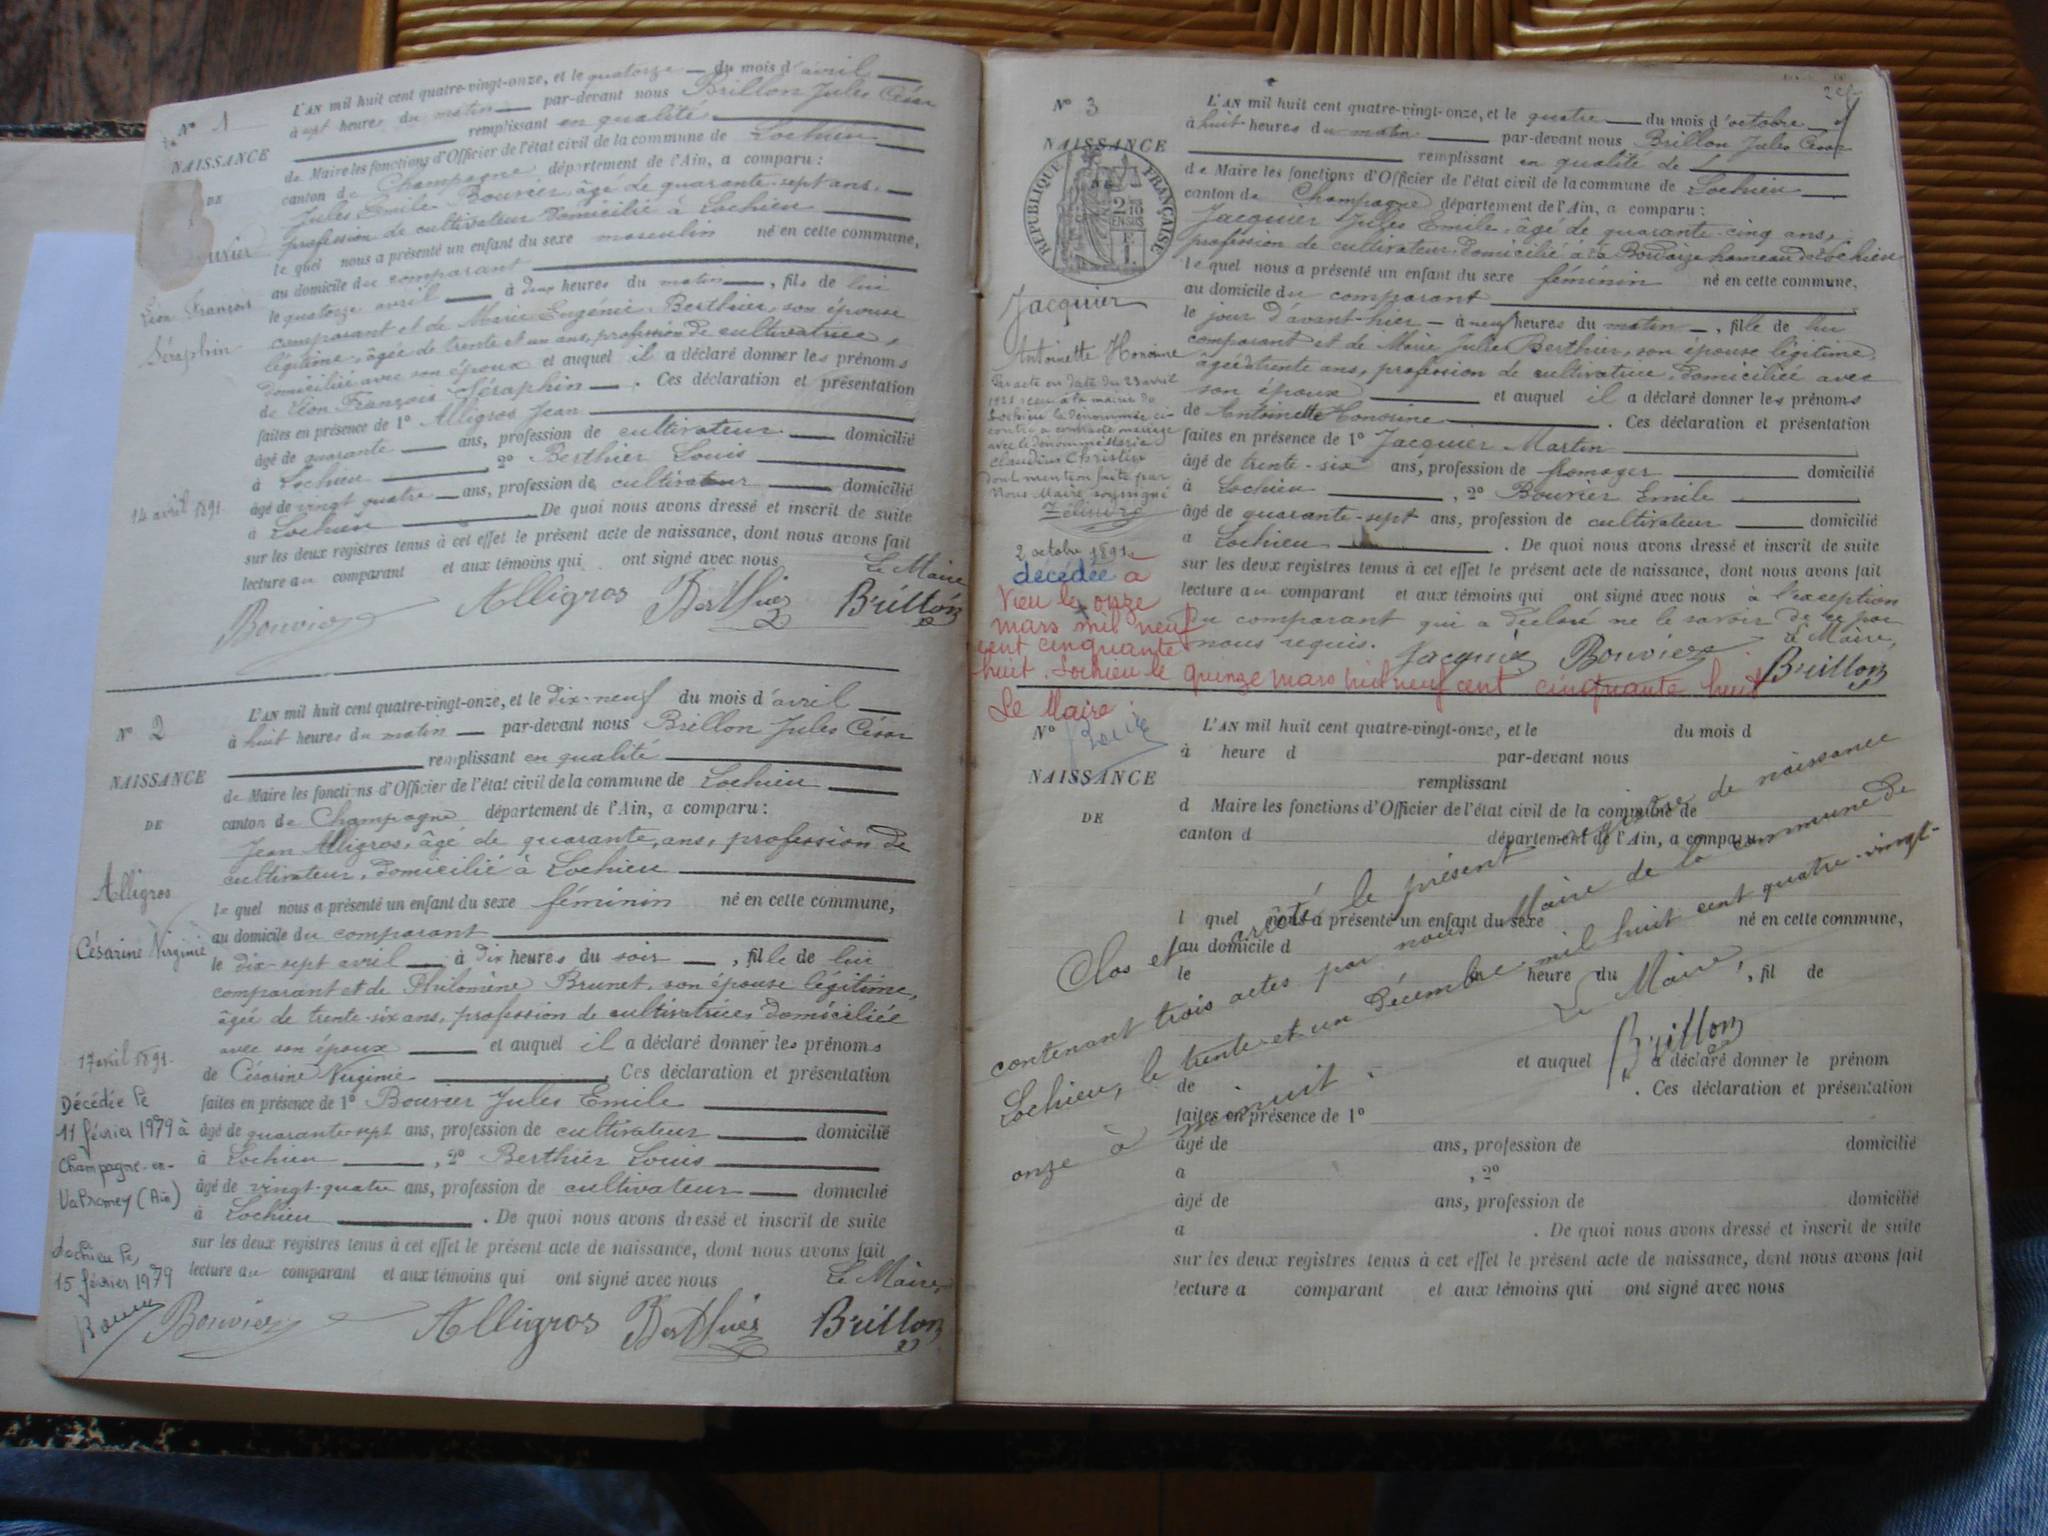 N° 1
NAISSANCE
DE
Léon François
Séraphin
14 avril 1891.
L'AN mil huit cent quatre-vingt-onze, et le quatorze du mois d'avril
à sept heures du matin par-devant nous Brillon Jules César
remplissant en qualité
de Maire les fonctions d'Officier de l'état civil de la commune de Lochieu
canton de Champagne, département de l'Ain, a comparu :
Jules Emile Bouvier, âgé de quarante-sept ans,
profession de cultivateur domicilié à Lochieu
le quel nous a présenté un enfant du sexe masculin né en cette commune,
au domicile du comparant
le quatorze avril à deux heures du matin, fils de lui
comparant et de Marie Eugénie Berthier, son épouse
légitime, âgée de trente et un ans, profession de cultivatrice,
domiciliée avec son époux et auquel il a déclaré donner les prénoms
de Léon François Séraphin . Ces déclaration et présentation
faites en présence de 1° Alligros Jean
âgé de quarante ans, profession de cultivateur domicilié
à Lochieu 2° Berthier Louis
âgé de vingt quatre ans, profession de cultivateur domicilié
à Lochieu De quoi nous avons dressé et inscrit de suite
sur les deux registres tenus à cet effet le présent acte de naissance, dont nous avons fait
lecture au comparant et aux témoins qui ont signé avec nous
Le Maire
Bouvier Alligros Berthier Brillon
N° 2
NAISSANCE
DE
Alligros
Césarine Virginie
17 avril 1891.
Décédée le
11 février 1979 à
Champagne-en-
Valromey (Ain)
Lochieu le,
15 février 1979
L'AN mil huit cent quatre-vingt-onze, et le dix-neuf du mois d'avril
à huit heures du matin par-devant nous Brillon Jules César
remplissant en qualité
de Maire les fonctions d'Officier de l'état civil de la commune de Lochieu
canton de Champagne département de l'Ain, a comparu :
Jean Alligros, âgé de quarante, ans, profession de
cultivateur, domicilié à Lochieu
le quel nous a présenté un enfant du sexe féminin né en cette commune,
au domicile du comparant
le dix-sept avril à dix heures du soir , fille de lui
comparant et de Philomène Brunet, son épouse légitime,
âgée de trente-six ans, profession de cultivatrice, domiciliée
avec son époux et auquel il a déclaré donner les prénoms
de Césarine Virginie . Ces déclaration et présentation
faites en présence de 1° Bouvier Jules Emile
âgé de quarante-sept ans, profession de cultivateur domicilié
à Lochieu , 2° Berthier Louis
âgé de vingt-quatre ans, profession de cultivateur domicilié
à Lochieu . De quoi nous avons dressé et inscrit de suite
sur les deux registres tenus à cet effet le présent acte de naissance, dont nous avons fait
lecture au comparant et aux témoins qui ont signé avec nous
Le Maire,
Bouvier Alligros Berthier Brillon
N° 3
NAISSANCE
RÉPUBLIQUE FRANÇAISE
Jacquier
Antoinette Honorine
Par acte en date du 23 avril
reçu à la mairie de
Lochieu la dénommée ci-
contre a contracté mariage
avec le dénommé
Claudius Christin
dont mention faite par
Nous Maire soussigné
2 octobre 1891
décédée à
Vieu le onze
mars mil neuf
cent cinquante
huit. Lochieu le quinze mars mil neuf cent cinquante huit
Le Maire :
L'AN mil huit cent quatre-vingt-onze, et le quatre du mois d'octobre
à huit heures du matin par-devant nous Brillon Jules César
remplissant en qualité de
de Maire les fonctions d'Officier de l'état civil de la commune de Lochieu
canton de Champagne département de l'Ain, a comparu :
Jacquier Jules Emile, âgé de quarante-cinq ans,
profession de cultivateur, domicilié à hameau de Lochieu
le quel nous a présenté un enfant du sexe féminin né en cette commune,
au domicile du comparant
le jour d'avant-hier à neuf heures du matin , fille de lui
comparant et de Marie Julie Berthier, son épouse légitime,
âgée de trente ans, profession de cultivatrice, domiciliée avec
son époux et auquel il a déclaré donner les prénoms
de Antoinette Honorine . Ces déclaration et présentation
faites en présence de 1° Jacquier Martin
âgé de trente-six ans, profession de fromager domicilié
à Lochieu , 2° Bouvier Emile
âgé de quarante-sept ans, profession de cultivateur domicilié
à Lochieu . De quoi nous avons dressé et inscrit de suite
sur les deux registres tenus à cet effet le présent acte de naissance, dont nous avons fait
lecture au comparant et aux témoins qui ont signé avec nous à l'exception
du comparant qui a déclaré ne le savoir de ce par
nous requis.
Le Maire,
Jacquier Bouvier Brillon
N°
NAISSANCE
DE
L'AN mil huit cent quatre-vingt-onze, et le du mois d
à heure d par-devant nous
remplissant
d Maire les fonctions d'Officier de l'état civil de la commune de
canton d département de l'Ain, a comparu
l quel nous a présenté un enfant du sexe né en cette commune,
au domicile d
le heure du , fil de
et auquel a déclaré donner le prénom
de . Ces déclaration et présentation
faites en présence de 1°
âgé de ans, profession de domicilié
a , 2°
âgé de ans, profession de domicilié
a . De quoi nous avons dressé et inscrit de suite
sur les deux registres tenus à cet effet le présent acte de naissance, dont nous avons fait
lecture a comparant et aux témoins qui ont signé avec nous
Clos et arrêté le présent registre de naissance
contenant trois actes par nous Maire de la commune de
Lochieu, le trente et un décembre mil huit cent quatre-vingt-
onze à minuit.
Le Maire,
Brillon